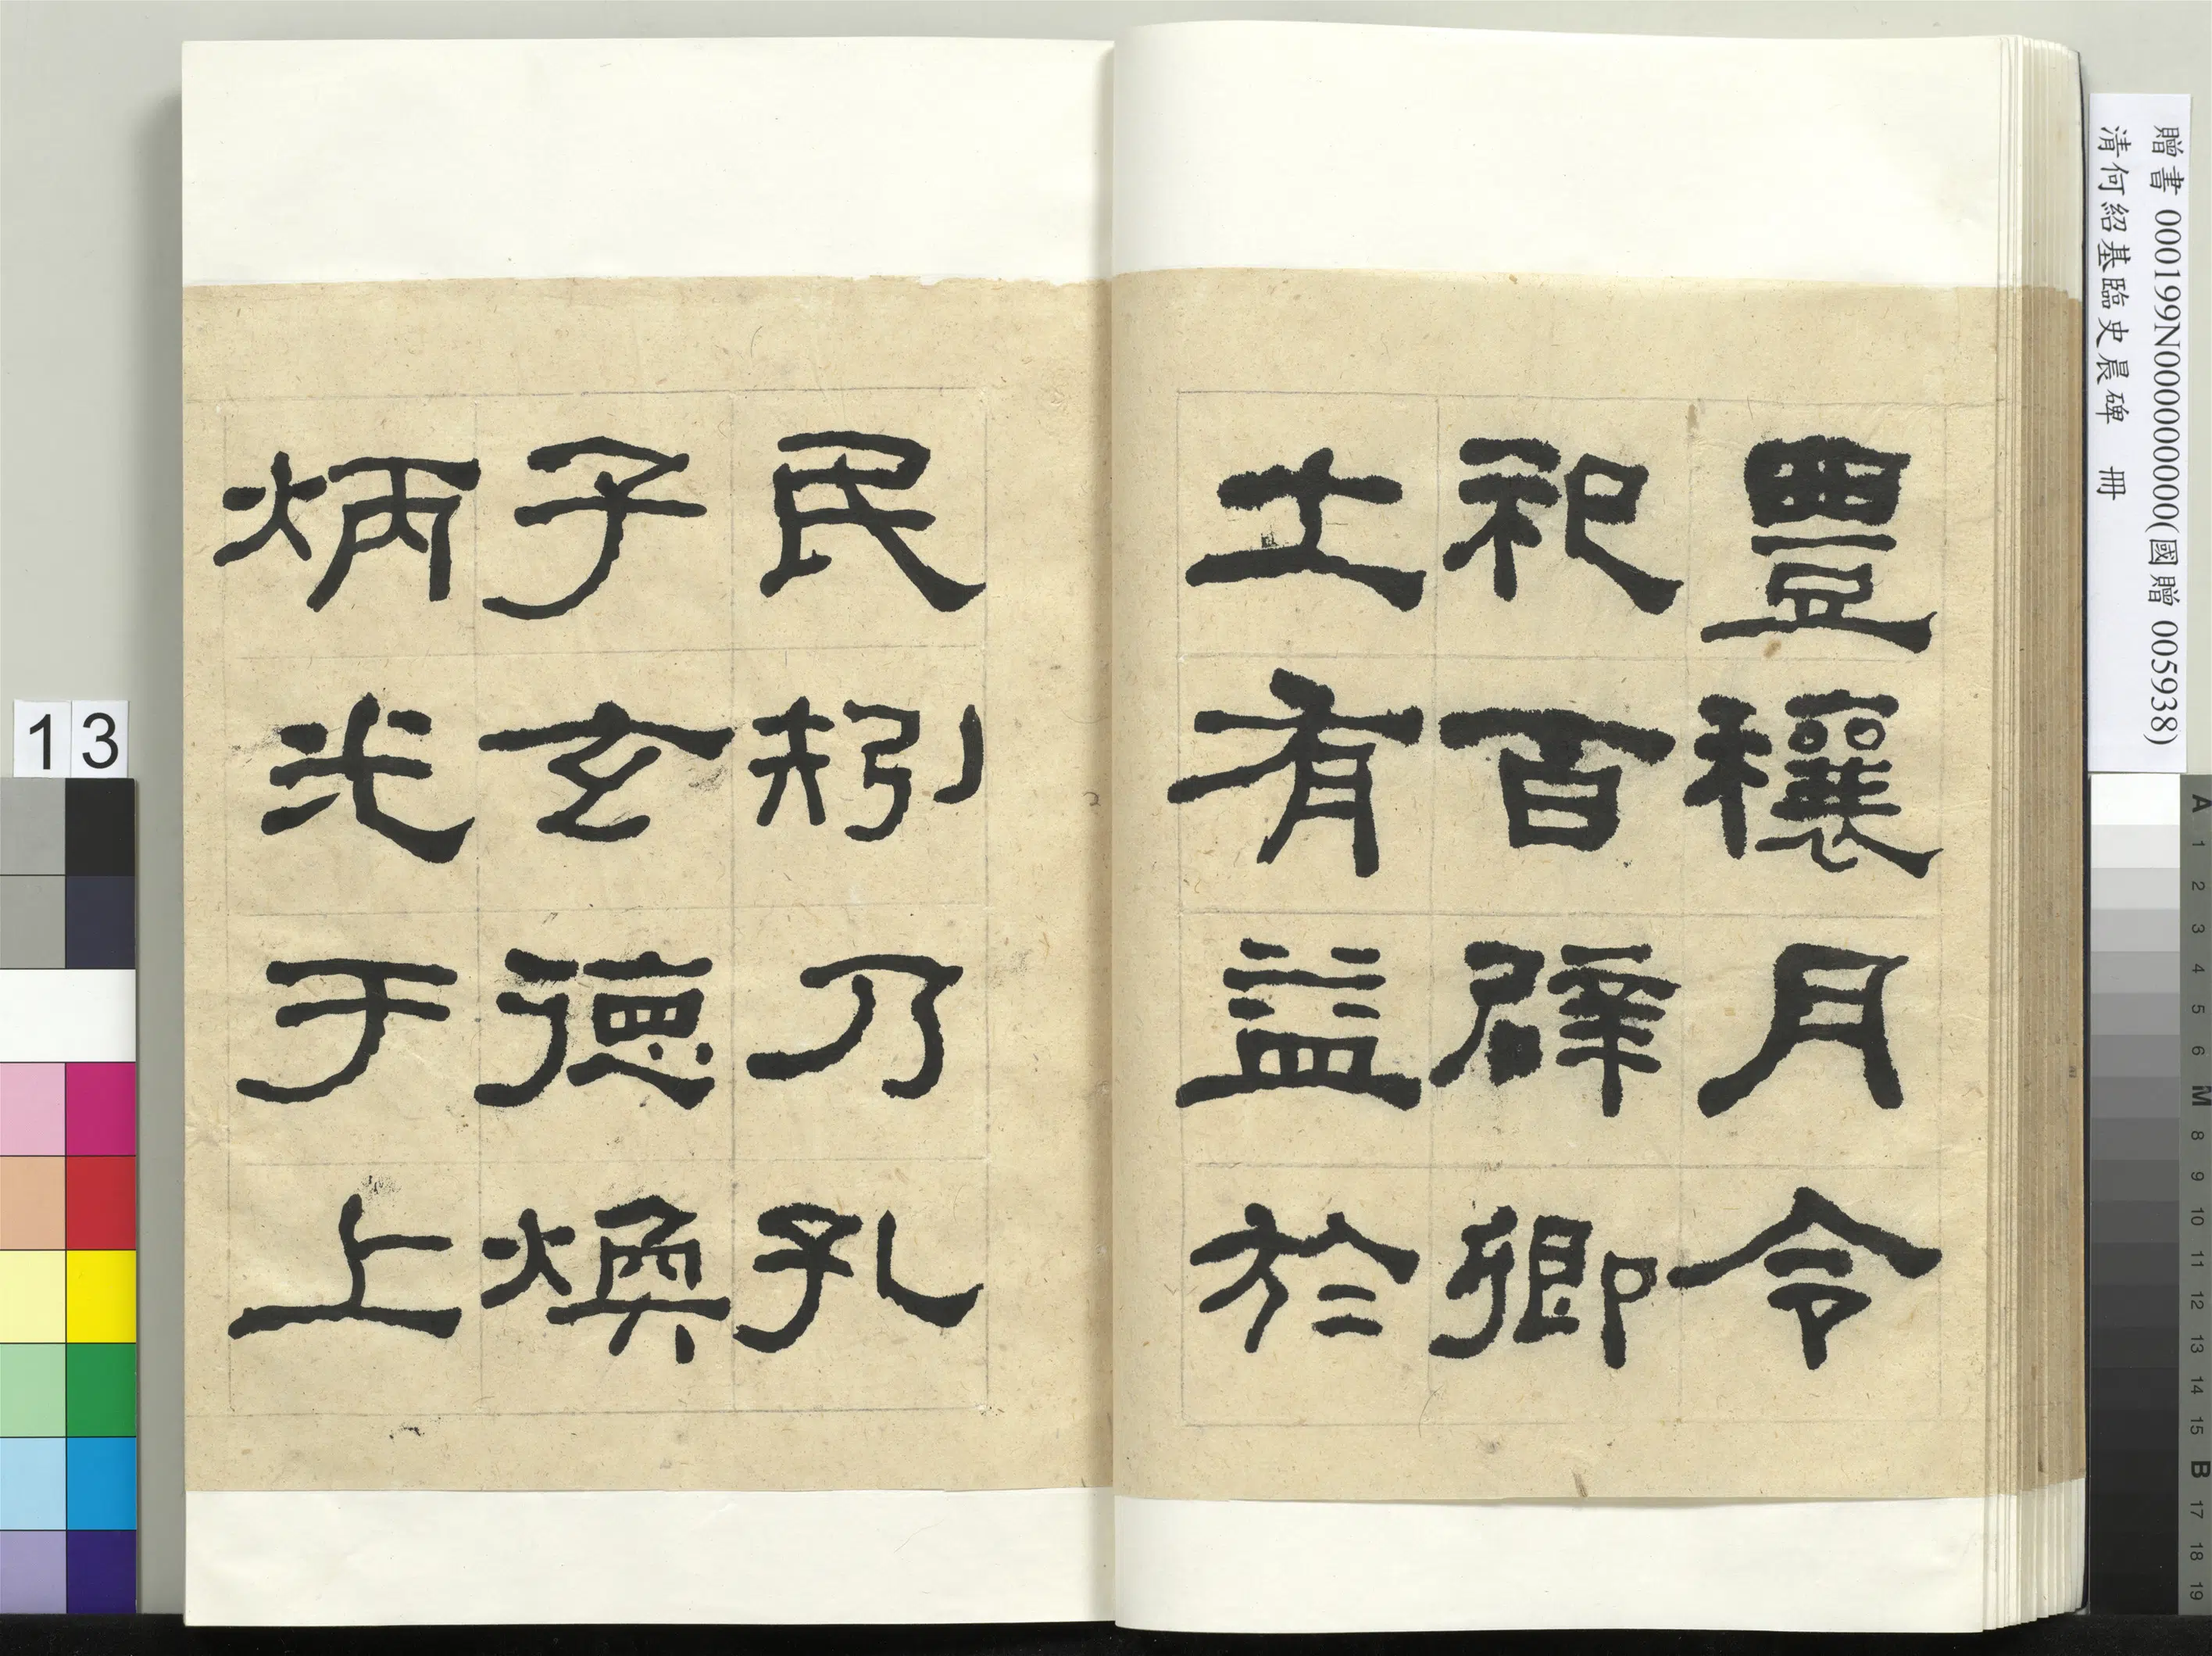 豐穰月令
祀百辟卿
士有益於
民矧乃孔
子玄德煥
炳光于上
贈書 000199N000000000(國贈 005938)
清何紹基臨史晨碑 冊
13
A 1 2 3 4 5 6 M 8 9 10 11 12 13 14 15 B 17 18 19